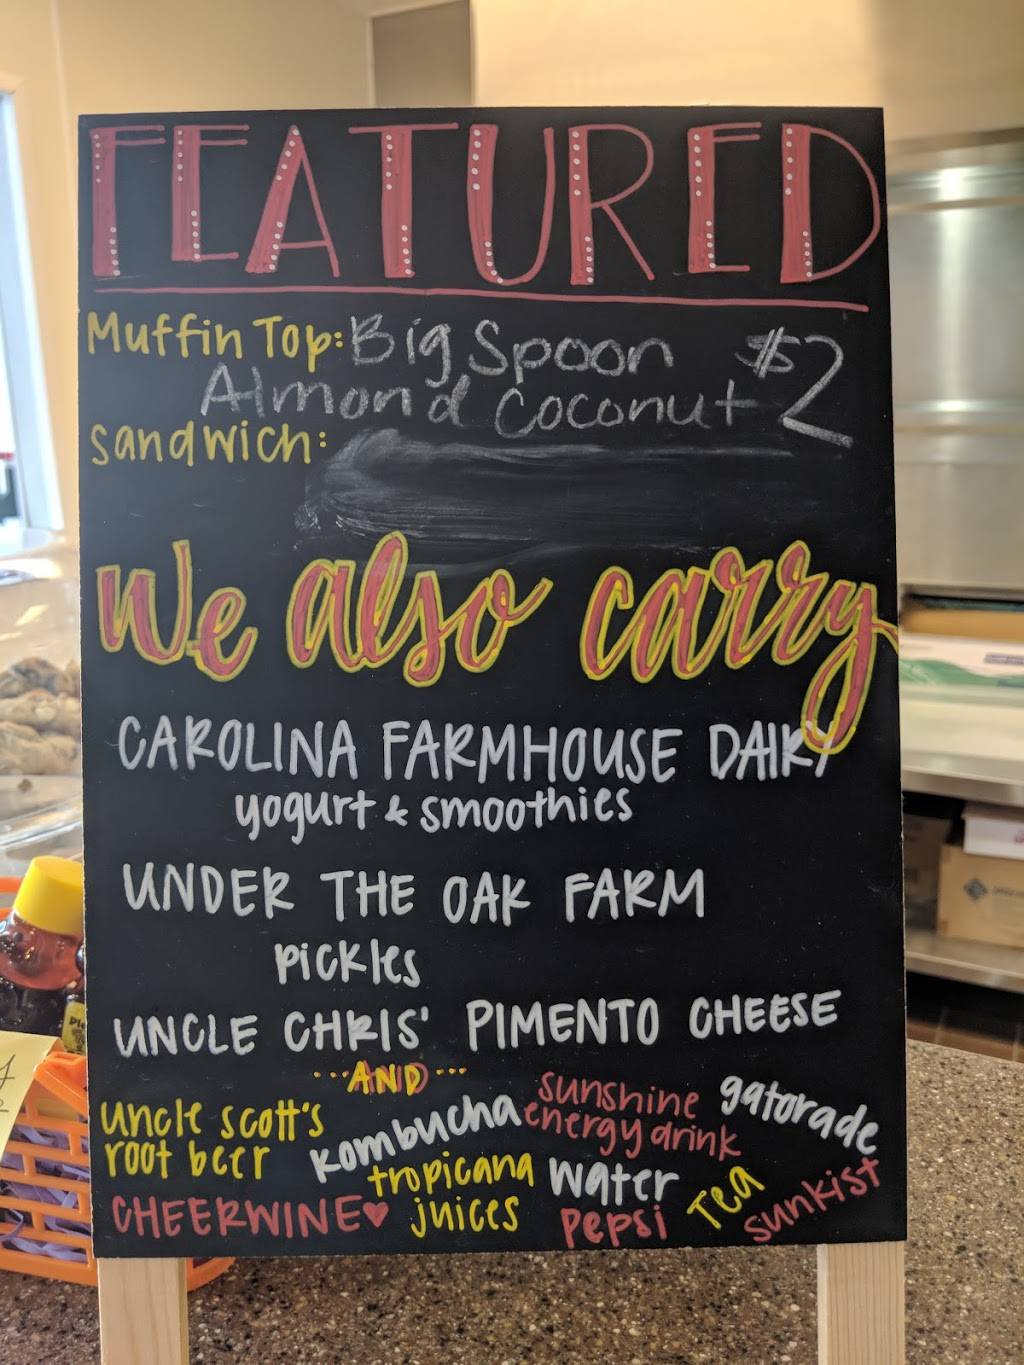 FEATURED
Muffin Top: Big Spoon $2
Almond Coconut
Sandwich:
We also carry
CAROLINA FARMHOUSE DAIRY
yogurt & smoothies
UNDER THE OAK FARM
pickles
UNCLE CHRIS' PIMENTO CHEESE
...AND...
uncle scott's
root beer
kombucha
sunshine
energy drink
gatorade
CHEERWINE♥
tropicana
juices
water
pepsi
Tea
sunkist